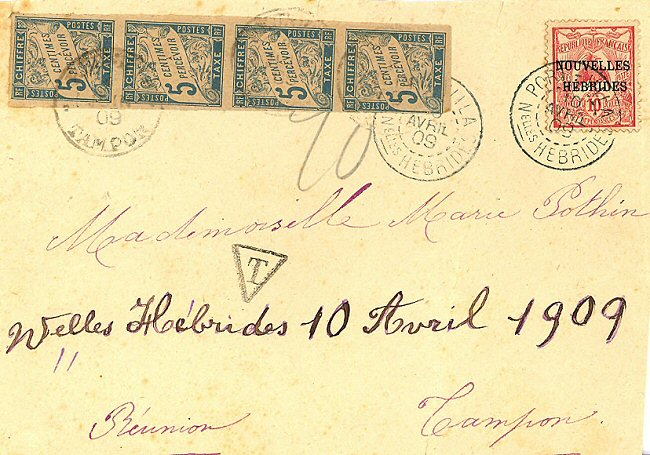 CHIFFRE TAXE POSTES RF 5 CENTIMES A PERCEVOIR
CHIFFRE TAXE POSTES RF 5 CENTIMES A PERCEVOIR
CHIFFRE TAXE POSTES RF 5 CENTIMES A PERCEVOIR
CHIFFRE TAXE POSTES RF 5 CENTIMES A PERCEVOIR
REPUBLIQUE FRANÇAISE
NOUVELLES
HEBRIDES
10
09
TAMPON
VILA
AVRIL
09
Nelles HEBRIDES
PORT
10
AVRIL
09
Nelles HEBRIDES
20
Mademoiselle Marie Pothin
T
Nelles Hébrides 10 Avril 1909
Réunion Tampon